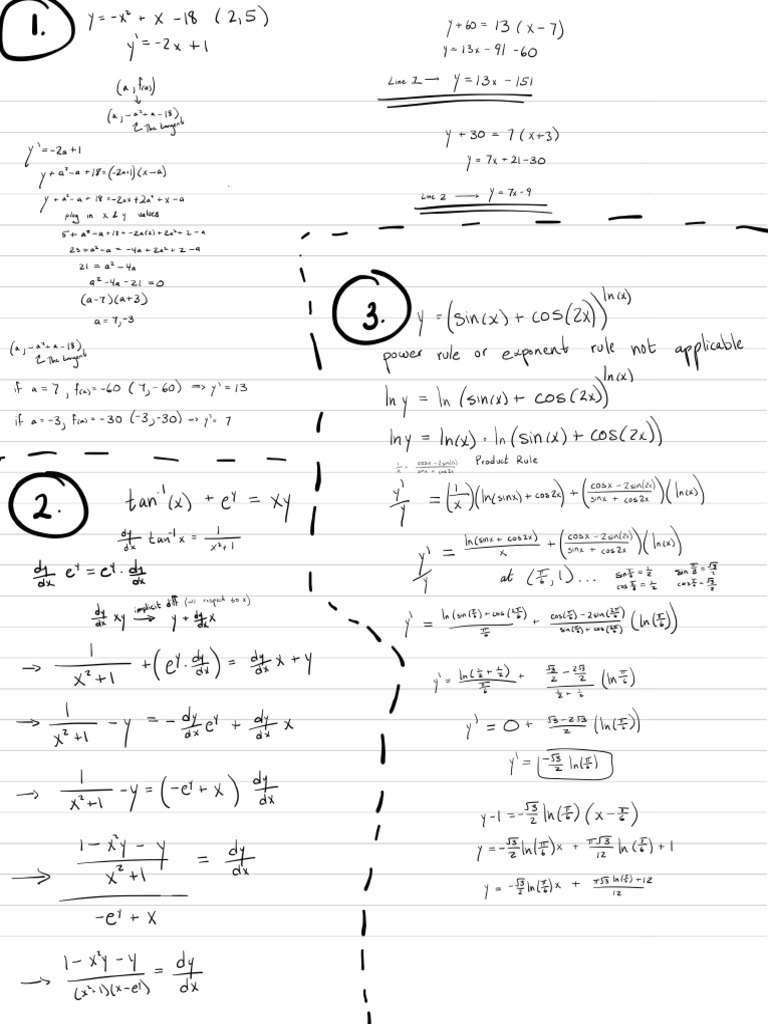 1. y = -x² + x - 18 (2,5)
y' = -2x + 1
(a, f(a))
↓
(a, -a²+a-18)
The tangent
y' = -2a+1
y + a² - a + 18 = (-2a+1)(x-a)
y + a² - a + 18 = -2ax + 2a² + x - a
plug in x & y values
5 + a² - a + 18 = -2a(2) + 2a² + 2 - a
23 + a² - a = -4a + 2a² + 2 - a
21 = a² - 4a
a² - 4a - 21 = 0
(a-7)(a+3)
a = 7, -3
(a, -a²+a-18)
The tangent
if a = 7, f(a) = -60 (7, -60) ⟹ y' = 13
if a = -3, f(a) = -30 (-3, -30) → y' = 7
y + 60 = 13 (x - 7)
y = 13x - 91 - 60
Line 1 → y = 13x - 151
y + 30 = 7 (x+3)
y = 7x + 21 - 30
Line 2 → y = 7x - 9
2. tan⁻¹(x) + eʸ = xy
dy/dx tan⁻¹x = 1/(x²+1)
dy/dx eʸ = eʸ · dy/dx
dy/dx xy implicit diff (w/ respect to x) → y + dy/dx x
→ 1/(x²+1) + (eʸ · dy/dx) = dy/dx x + y
→ 1/(x²+1) - y = -dy/dx eʸ + dy/dx x
→ 1/(x²+1) - y = (-eʸ + x) dy/dx
→ ((1 - x²y - y)/(x²+1))/(-eʸ + x) = dy/dx
→ (1 - x²y - y)/((x²-1)(x-eʸ)) = dy/dx
3. y = (sin(x) + cos(2x))^ln(x)
power rule or exponent rule not applicable
ln y = ln (sin(x) + cos(2x))^ln(x)
ln y = ln(x) · ln (sin(x) + cos(2x))
1/x · (cosx - 2sin(2x))/(sinx + cos2x) Product Rule
y'/y = (1/x)(ln(sinx) + cos2x) + ((cosx - 2sin(2x))/(sinx + cos2x))(ln(x))
y'/y = ln(sinx + cos2x)/x + ((cosx - 2sin(2x))/(sinx + cos2x))(ln(x))
at (π/6, 1) ...
y' = ln(sin(π/6) + cos(2π/6))/(π/6) + (cos(π/6) - 2sin(2π/6))/(sin(π/6) + cos(2π/6)) (ln(π/6))
y' = ln(1/2 + 1/2)/(π/6) + (√3/2 - 2√3/2)/(1/2 + 1/2) (ln π/6)
y' = 0 + (√3 - 2√3)/2 (ln(π/6))
y' = -√3/2 ln(π/6)
y - 1 = -√3/2 ln(π/6) (x - π/6)
y = -√3/2 ln(π/6)x + π√3/12 ln(π/6) + 1
y = -√3/2 ln(π/6)x + (π√3 ln(π/6) + 12)/12